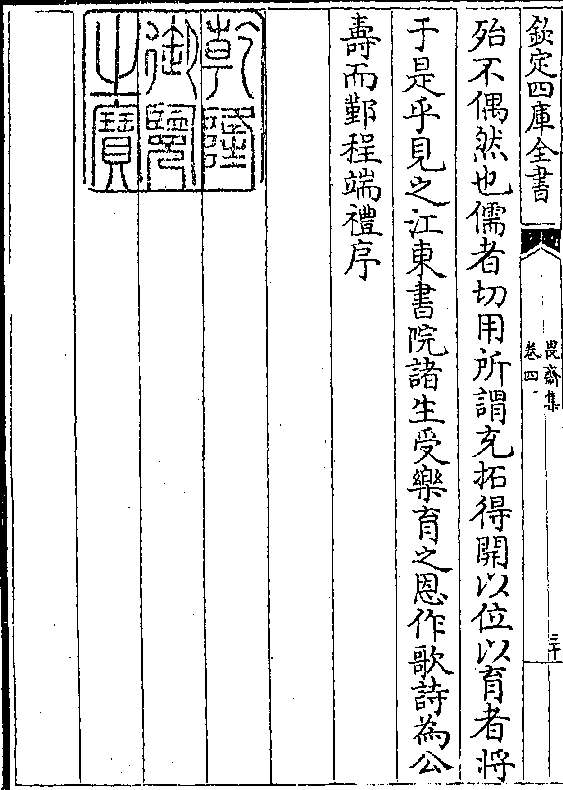 欽定四庫全書
畏齋集
卷四
三十
殆不偶然也儒者切用所謂充拓得開以位以育者將
于是乎見之江東書院諸生受樂育之恩作歌詩為公
壽而鄞程端禮序
乾隆
御覽
之寶